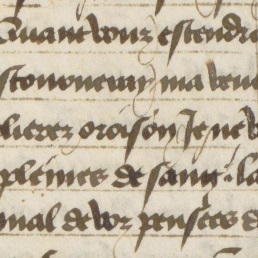 Quant vous estendre
stourneray ma veue
lierez oroison Je ne v
pleines de sang . la
mal de voz pensees d